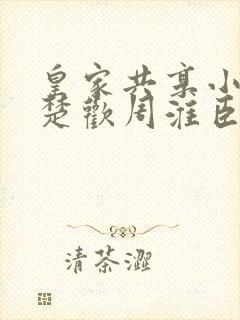 皇家共享小
楚歡周淮臣
清茶澀